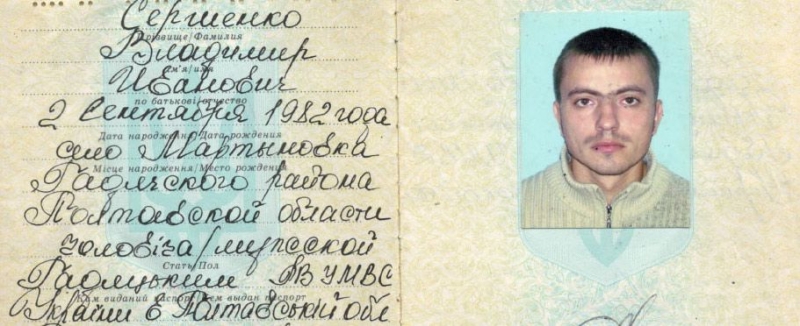 Сергиенко
Прізвище/Фамилия
Владимир
Ім'я/имя
Иванович
по батькові/отчество
2 Сентября 1982 года
Дата народження/Дата рождения
село Мартыновка
Місце народження/Место рождения
Гадячского района
Полтавской области
чоловіча/мужской
Стать/Пол
Гадяцьким РВ УМВС
Ким виданий паспорт/Кем выдан паспорт
України в Полтавській обл